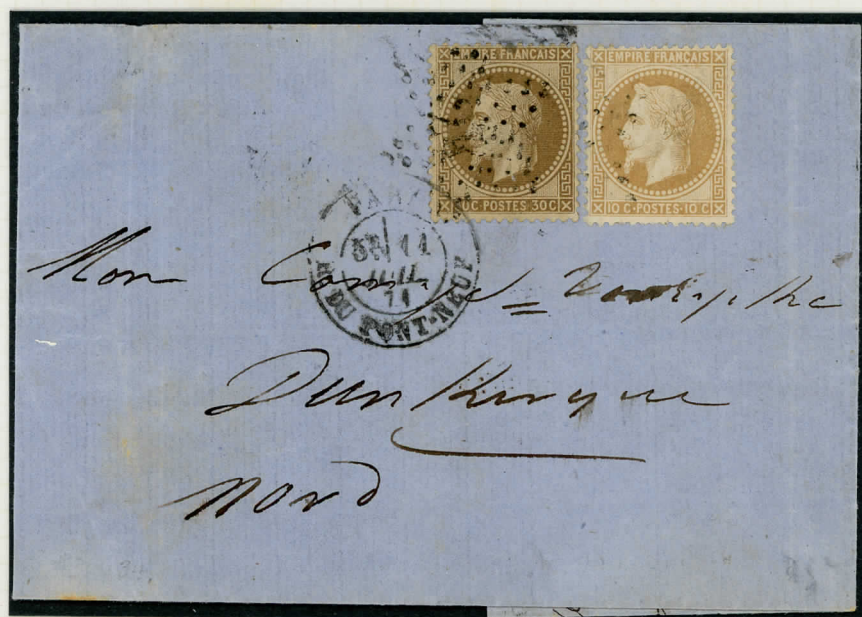 EMPIRE FRANÇAIS
30C·POSTES·30C
EMPIRE FRANÇAIS
10 C·POSTES·10 C
PARIS
11
JUIL.
71
R. DU PONT-NEUF
Mon
Dunkerque
Nord